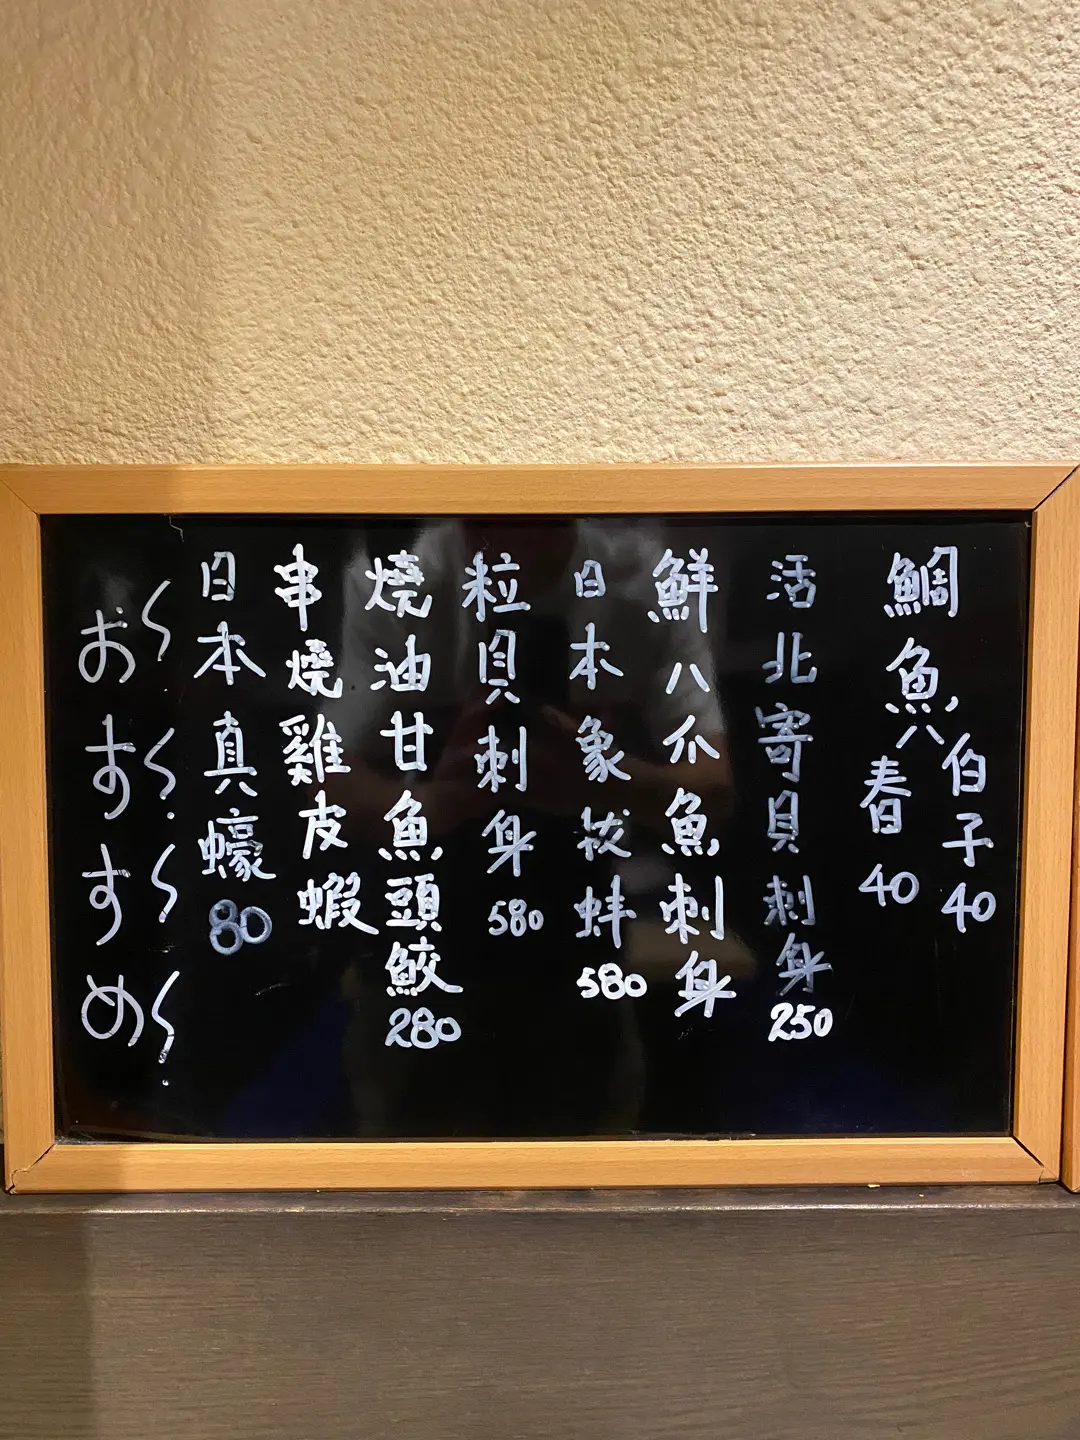 鯛魚
伯子 40
春 40
活北寄貝刺身 250
鮮八爪魚刺身
日本象拔蚌 580
粒貝刺身 580
燒油甘魚頭鮫 280
串燒雞皮蝦
日本真蠔 80
おすすめ